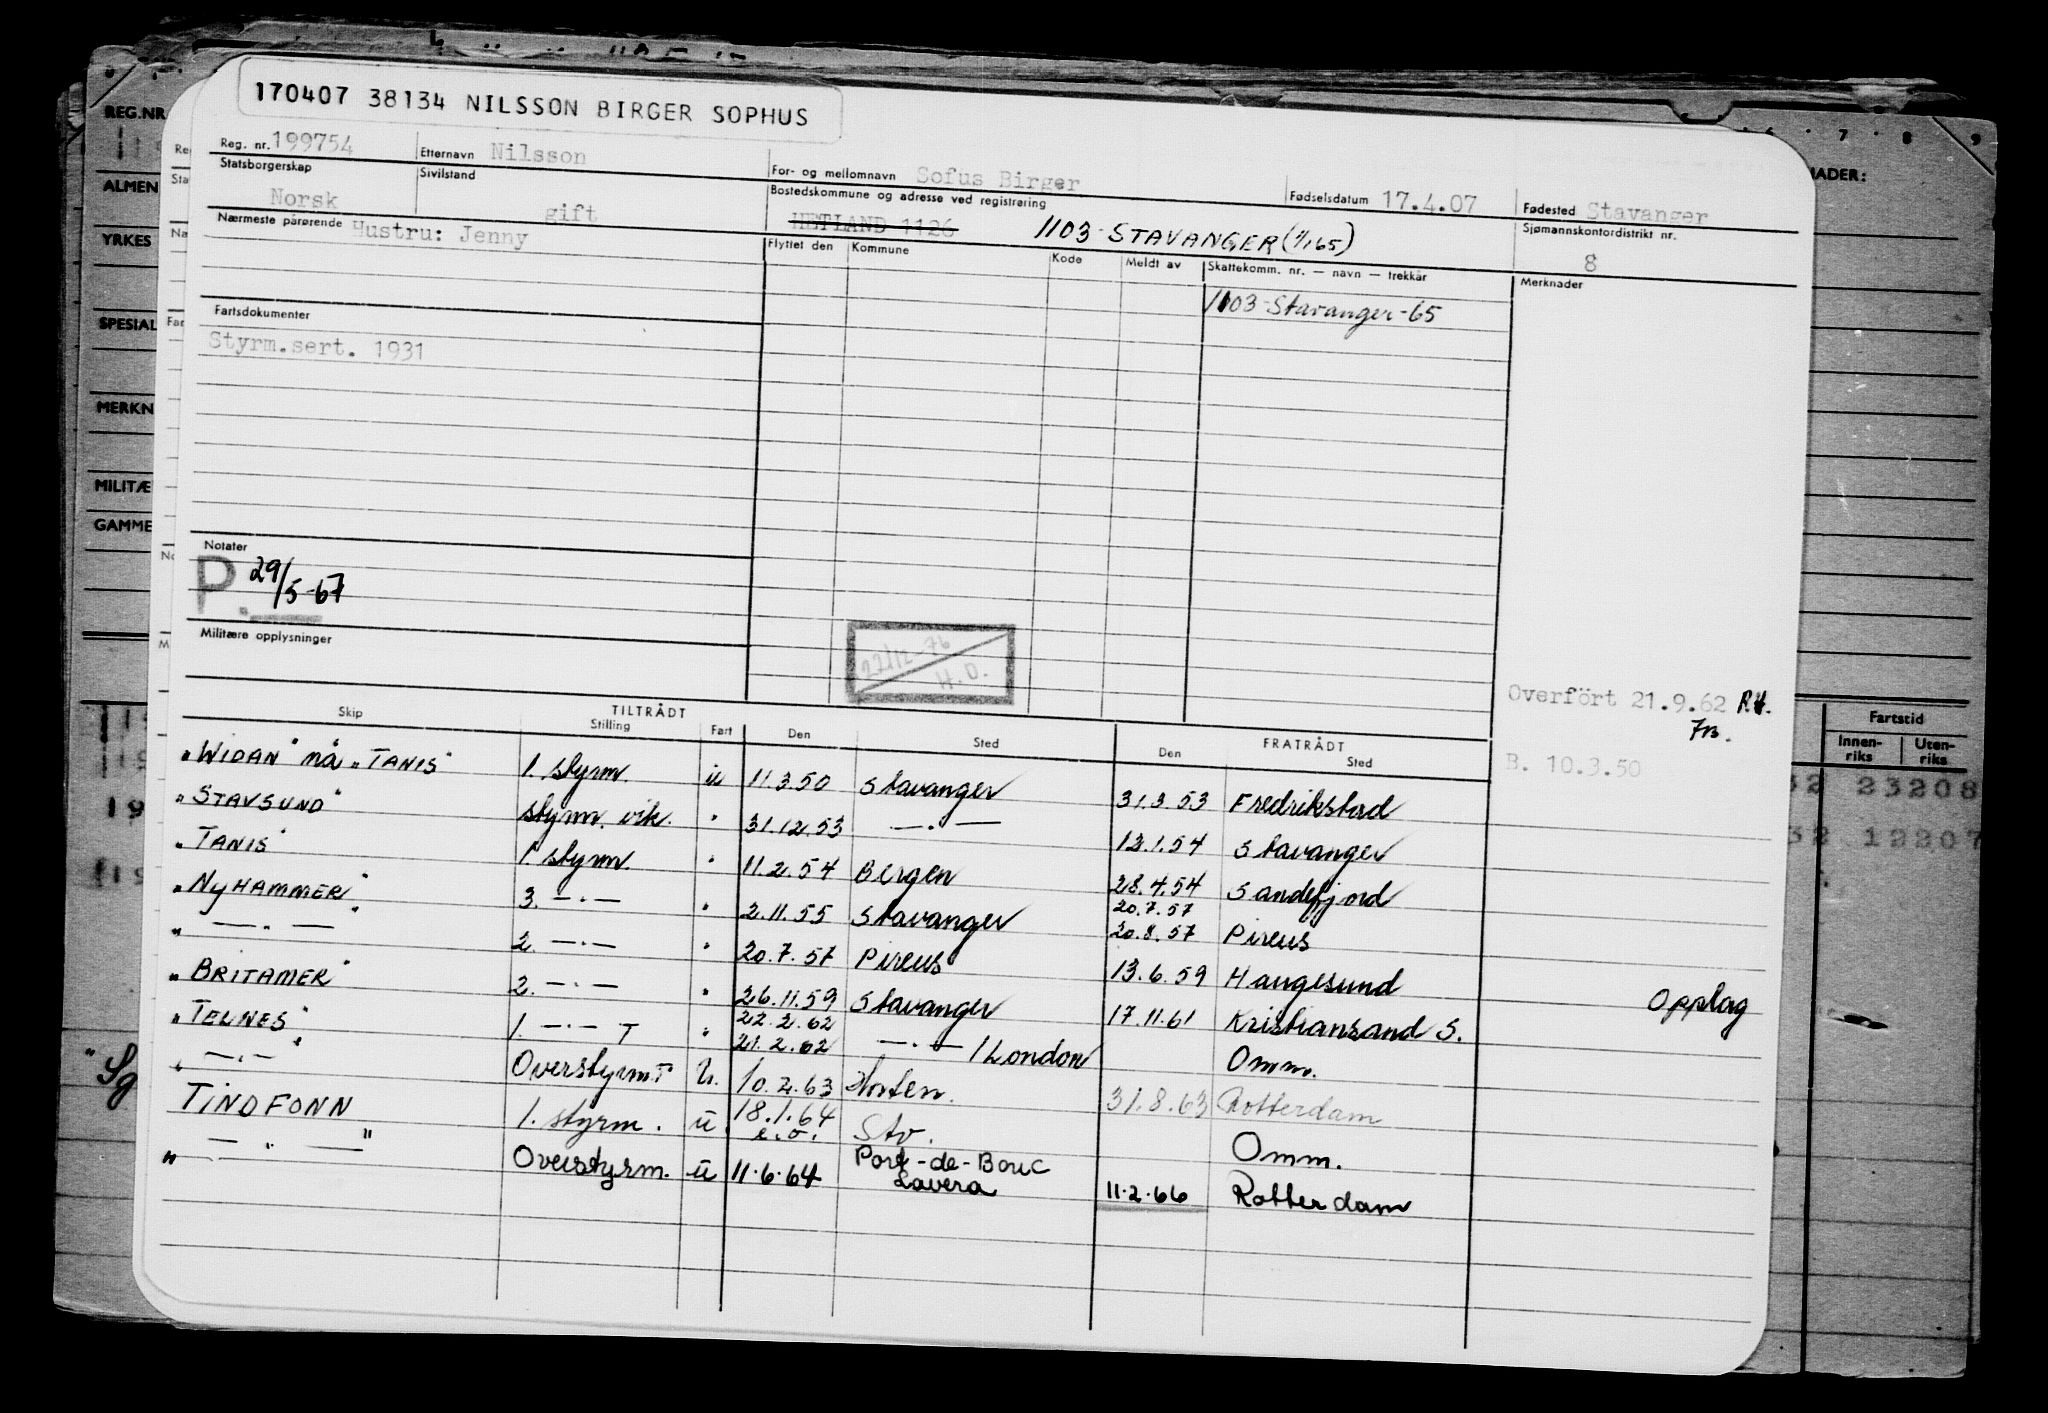 170407 38134 NILSSON BIRGER SOPHUS
Reg. nr. 199754 Etternavn Nilsson For- og mellomnavn Sofus Birger Fødselsdatum 17.4.07 Fødested Stavanger
Statsborgerskap Norsk Sivilstand gift Bostedskommune og adresse ved registrering HETLAND 1126 1103 STAVANGER (1/1 65) Sjømannskontordistrikt nr. 8
Nærmeste pårørende Hustru: Jenny Flyttet den Kommune Kode Meldt av Skattekomm. nr. — navn — trekkår Merknader
1103-Stavanger-65
Fartsdokumenter
Styrm.sert. 1931
Notater
P. 29/5-67
Militære opplysninger
22/12-76
H.O.
Overfört 21.9.62 R.H.
B. 10.3.50
TILTRÅDT FRATRÅDT
Skip Stilling Fart Den Sted Den Sted
"WIDAN" nå "TANIS" 1. styrm. u 11.3.50 Stavanger 31.3.53 Fredrikstad
"STAVSUND" styrm. vik. " 31.12.53 — " — 13.1.54 Stavanger
"TANIS" 1 styrm. " 11.2.54 Bergen 28.4.54 Sandefjord
"NYHAMMER" 3. — " — " 2.11.55 Stavanger 20.7.57 20.8.57 Pireus
" — " — " 2. — " — " 20.7.57 Pireus 13.6.59 Haugesund Opplag
"BRITAMER" 2. — " — " 26.11.59 Stavanger 17.11.61 Kristiansand S.
"TELNES" 1. — " — T " 22.2.62 21.2.62 — " — / London Omm.
" — " — " Overstyrm T U. 10.2.63 Horten. 31.8.63 Rotterdam
TINDFONN 1. styrm. u. 18.1.64 e.o. Stv. Omm.
" — " — " Overstyrm. u 11.6.64 Port-de-Bouc Lavera 11.2.66 Rotterdam
REG.NR.
ALMEN
YRKES
SPESIAL
MERKN
MILITÆ
GAMME
6 7 8 9
NADER:
Fartstid
Innen-riks Uten-riks
23208
12207